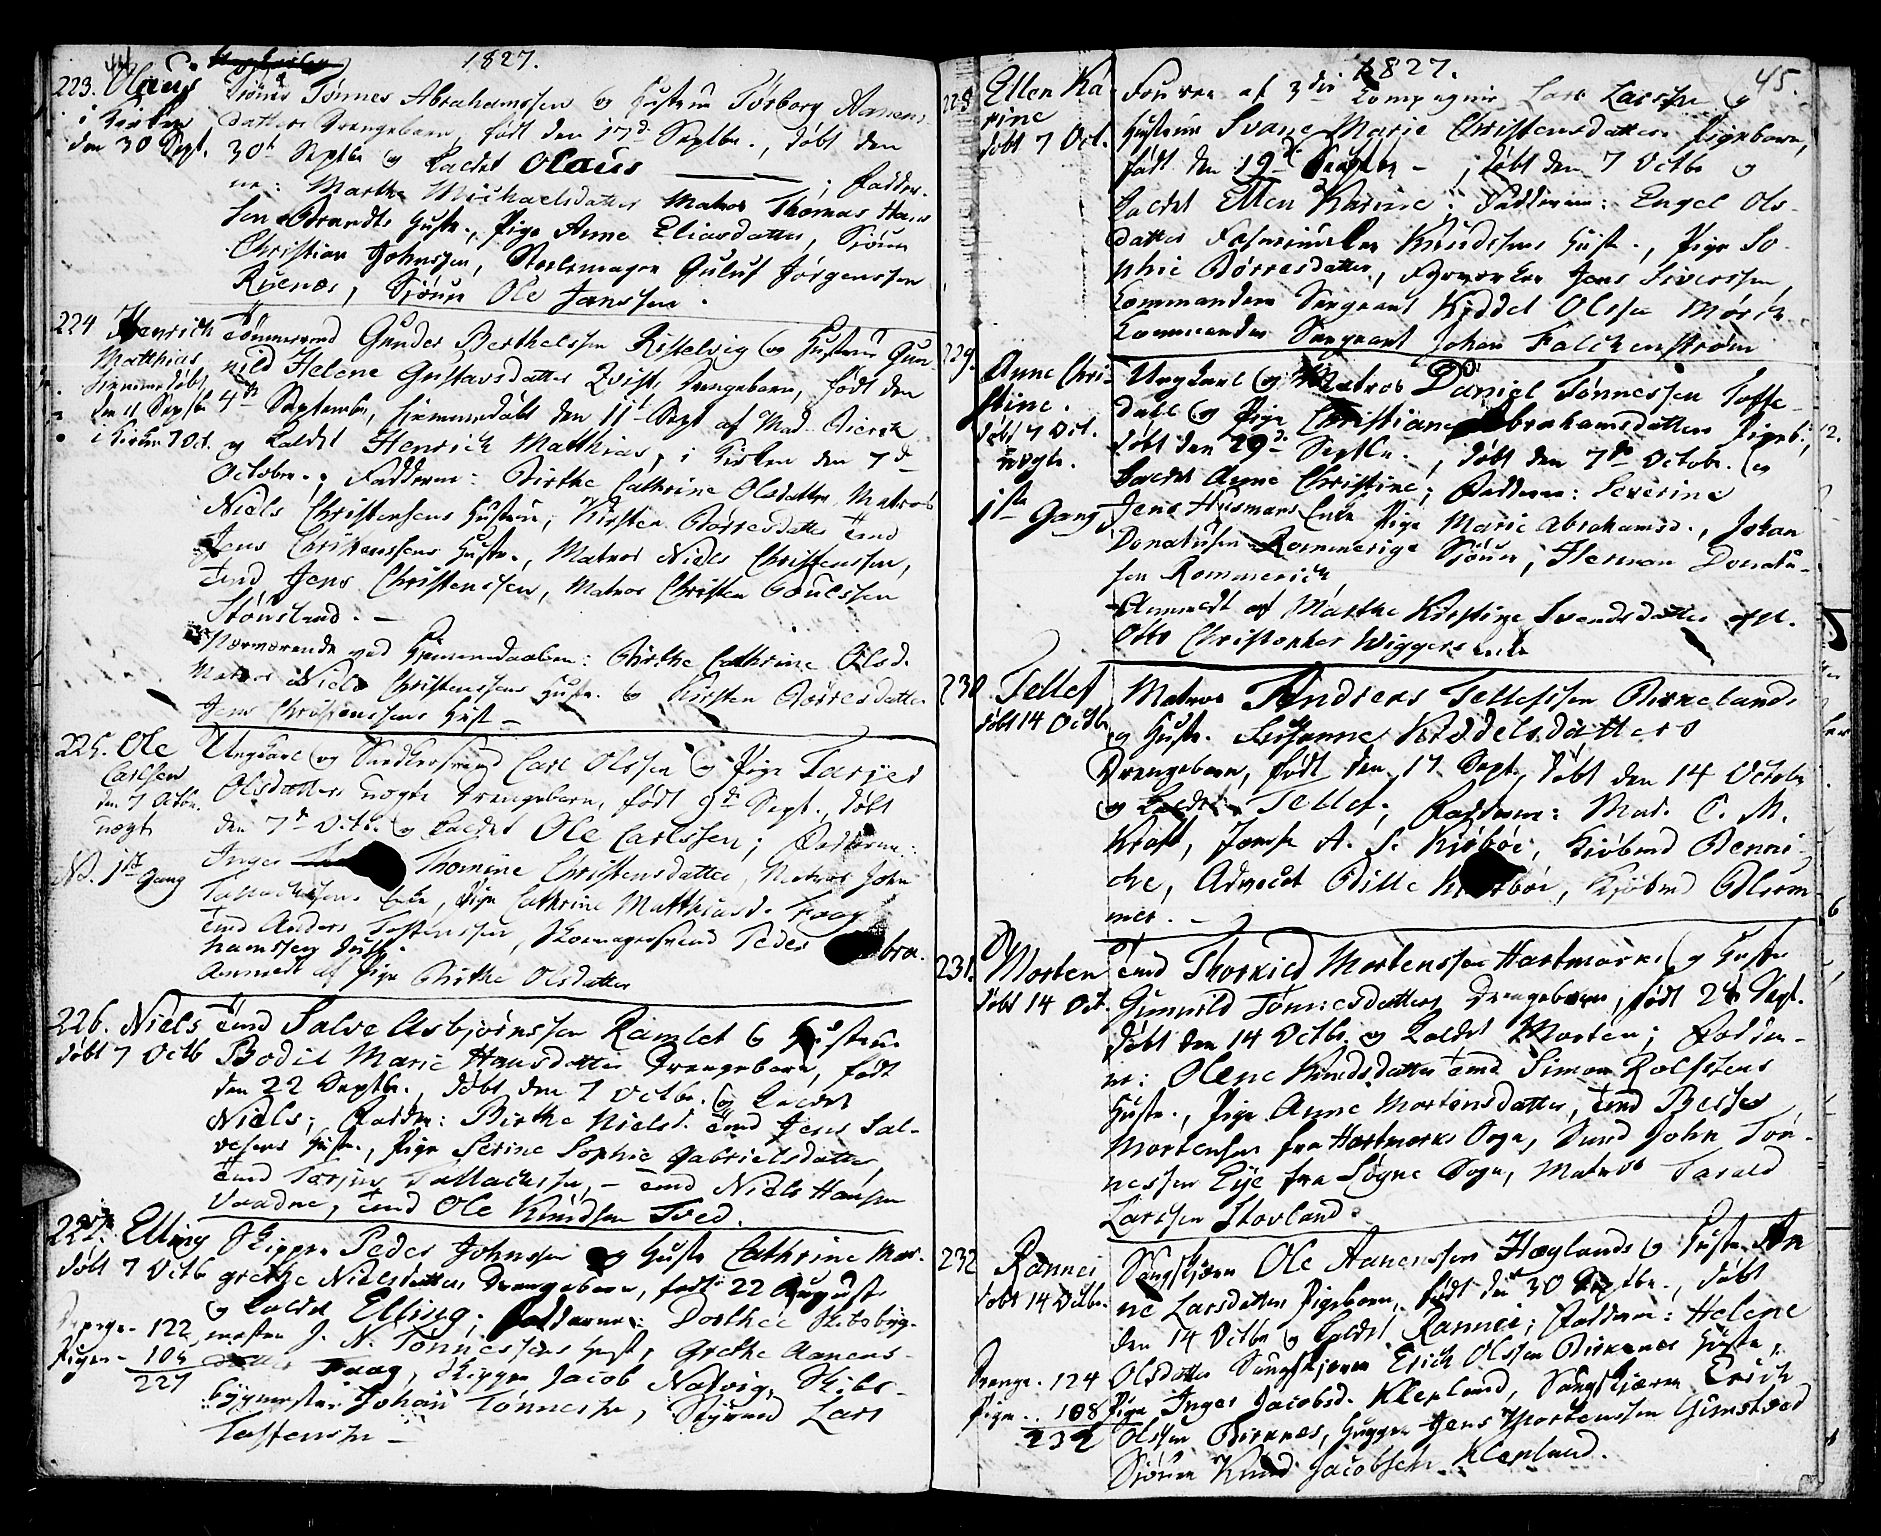 44
1827.
223. Olaus
i Kirken
den 30 Sept.
Tønnes Abrahamssen og Hustrue Torborg Aanens
datters Drengebarn, født den 17d Septbr., døbt den
30t Septbr og kaldet Olaus ; Fadder-
ne: Marthe Michaelsdatter Matros Thomas Hans
sen Brandts Hustr., Pige Anne Eliasdatter, Sjöur
Christian Johnssen, Guluf Jørgenssen
Sjöur Ole Janssen.
224 Henrich
Matthias
hjemmedøbt
den 11 Septbr
i Kirken 7 Oct.
Tømmermd Gunder Berthelssen Risselvig og Hustrue Gun
nild Helene Gustavsdatter Qvist, Drengebarn, født den
4de September, hjemmedøbt den 11t Sept af Mad.
og kaldet Henrich Matthias, i Kirken den 7d
October.; Fadderne: Birthe Cathrine Olsdatter Matros
Niels Christensens Hustrue, Kirsten Børresdatter Tmd
Jens Christenssens Hustr., Matros Niels Christenssen,
Tmd Jens Christenssen, Matros Christen
Stønsland. -
Nærværende ved Hjemmedaaben: Birthe Cathrine Olsd.
Matros Niels Christenssens Hustr. og Kirsten Børresdatter
Jens Christenssens Hust -
225. Ole
Carlsen
den 7 Octbr.
uægte
No. 1ste Gang
Ungkarl og Carl Olssen og Pige Tarjer
Olsdatters uægte Drengebarn, født 9de Sept., døbt
den 7de Octb. og kaldet Ole Carlssen; Fadderne:
Inger Thomine Christensdatter, Matros John
Tallachsens Enke, Pige Cathrine Matthiasd. Faag
Tmd Anders Tostenssen, Skomagersvend Peder Abra-
hamssen
Anmeldt af Pige Birthe Olsdatter
226. Niels
døbt 7 Octb
Tmd Salve Asbjørnssen Ramlet og Hustrue
Bodil Marie Hansdatter Drengebarn, født
den 22 Septbr., døbt den 7 Octbr. og kaldet
Niels; Faddr: Birthe Nielsd. Tmd Jens Sal-
vesens Hustr., Pige Serine Sophie Gabrielsdatter,
Tmd Tarjus Tallachssen, - Tmd Niels Hansen
Vraadne, Tmd Ole Knudsen Tved.
227. Elling
døbt 7 Octb
Skipper Peder Johnssen og Hustr Cathrine Mar-
grethe Nielsdatters Drengebarn, født 22 August
og kaldet Elling; Fadderne: Dorthee Skibsbyg-
mester J. N. Tønnessens Hust, Grethe Aanens-
datter Faag, Skipper Jacob Natvig, Skibs-
bygmester Johan Tønnessen, Styrmd Lars
Tostenssen -
Drenge - 122
Piger - 105
227
1827.
45.
228 Ellen Ka
rine
døbt 7 Oct.
Fourer af 3die Compagnie Lars Larssen og
Hustrue Svane Marie Christensdatters Pigebarn,
født den 19de Septbr - , døbt den 7 Octbr og
kaldet Ellen Karine; Fadderne: Engel Ols-
datter Knudssens Hustr., Pige So-
phie Børresdatter, Jens Siverssen,
Commandeer Sergeant Kiddel Olssen Mørch
Commandeer Sergeant Johan Falckenstrøm
229. Anne Chri-
stine.
døbt 7 Oct.
uægte.
1ste Gang
Ungkarl og Matros Daniel Tønnessen Tofte-
dall og Pige Christiane Abrahamsdatters Pigeb.,
født den 29de Septbr. , døbt den 7de Octobr. og
kaldet Anne Christine; Fadderne: Severine
Jens Huusmans Enke Pige Marie Abrahamsd., Johan
Donatusen Rommerige Sjöur, Herman Donatu-
sen Rommerich,
Anmeldt af Marthe Kirstine Svendsdatter
Otto Christopher Wiggers Enke
230 Tellef
døbt 14 Octbr
Matros Andreas Tellefssen Birkelands
og Hustr. Susanne Kiddelsdatters
Drengebarn, født den 17 Sept, døbt den 14 Octobr
og kaldet Tellef; Fadderne: Mad. C. M.
Kraft, Jomfr A. S. Kiøbøe, Kiøbmd Benni-
che, Advocat Bille Kiøbøe, Kjøbmd
mer. -
231. Morten
døbt 14 Oct.
Tmd Thorkild Mortenssen Hartmarks og Hustr
Gunnild Tønnesdatters Drengebarn, født 24 Sept.
døbt den 14 Octbr. og kaldet Morten; Fadder-
ne: Olene Knudsdatter Tmd Simon Rolfssens
Hustr., Pige Anne Mortensdatter, Tmd Besse
Mortensen fra Hartmarks Sogn, Tmd John Tøn-
nessen Eye fra Søgne Sogn, Matros Tarald
Larssen Stovland.
232 Rannei
døbt 14 Octbr.
Ole Aanenssen Høglands og Hustr. An
ne Larsdatters Pigebarn, født den 30 Septbr., døbt
den 14 Octbr og kaldet Rannei; Fadderne: Helene
Olsdatter Erich Olssen Birkenes Hustr.,
Pige Inger Jacobsd. Klepland, Erich
Olssen Birkenes, Jens Mortenssen Gimstved
Sjöur Knud Jacobsen Klepland.
Drenge. 124
Piger. . 108
232